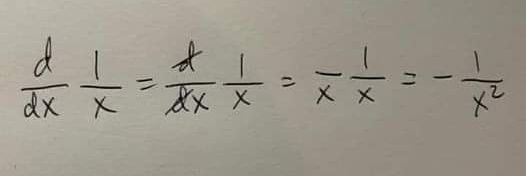 d/dx 1/x = d/dx 1/x = -/x 1/x = - 1/x²